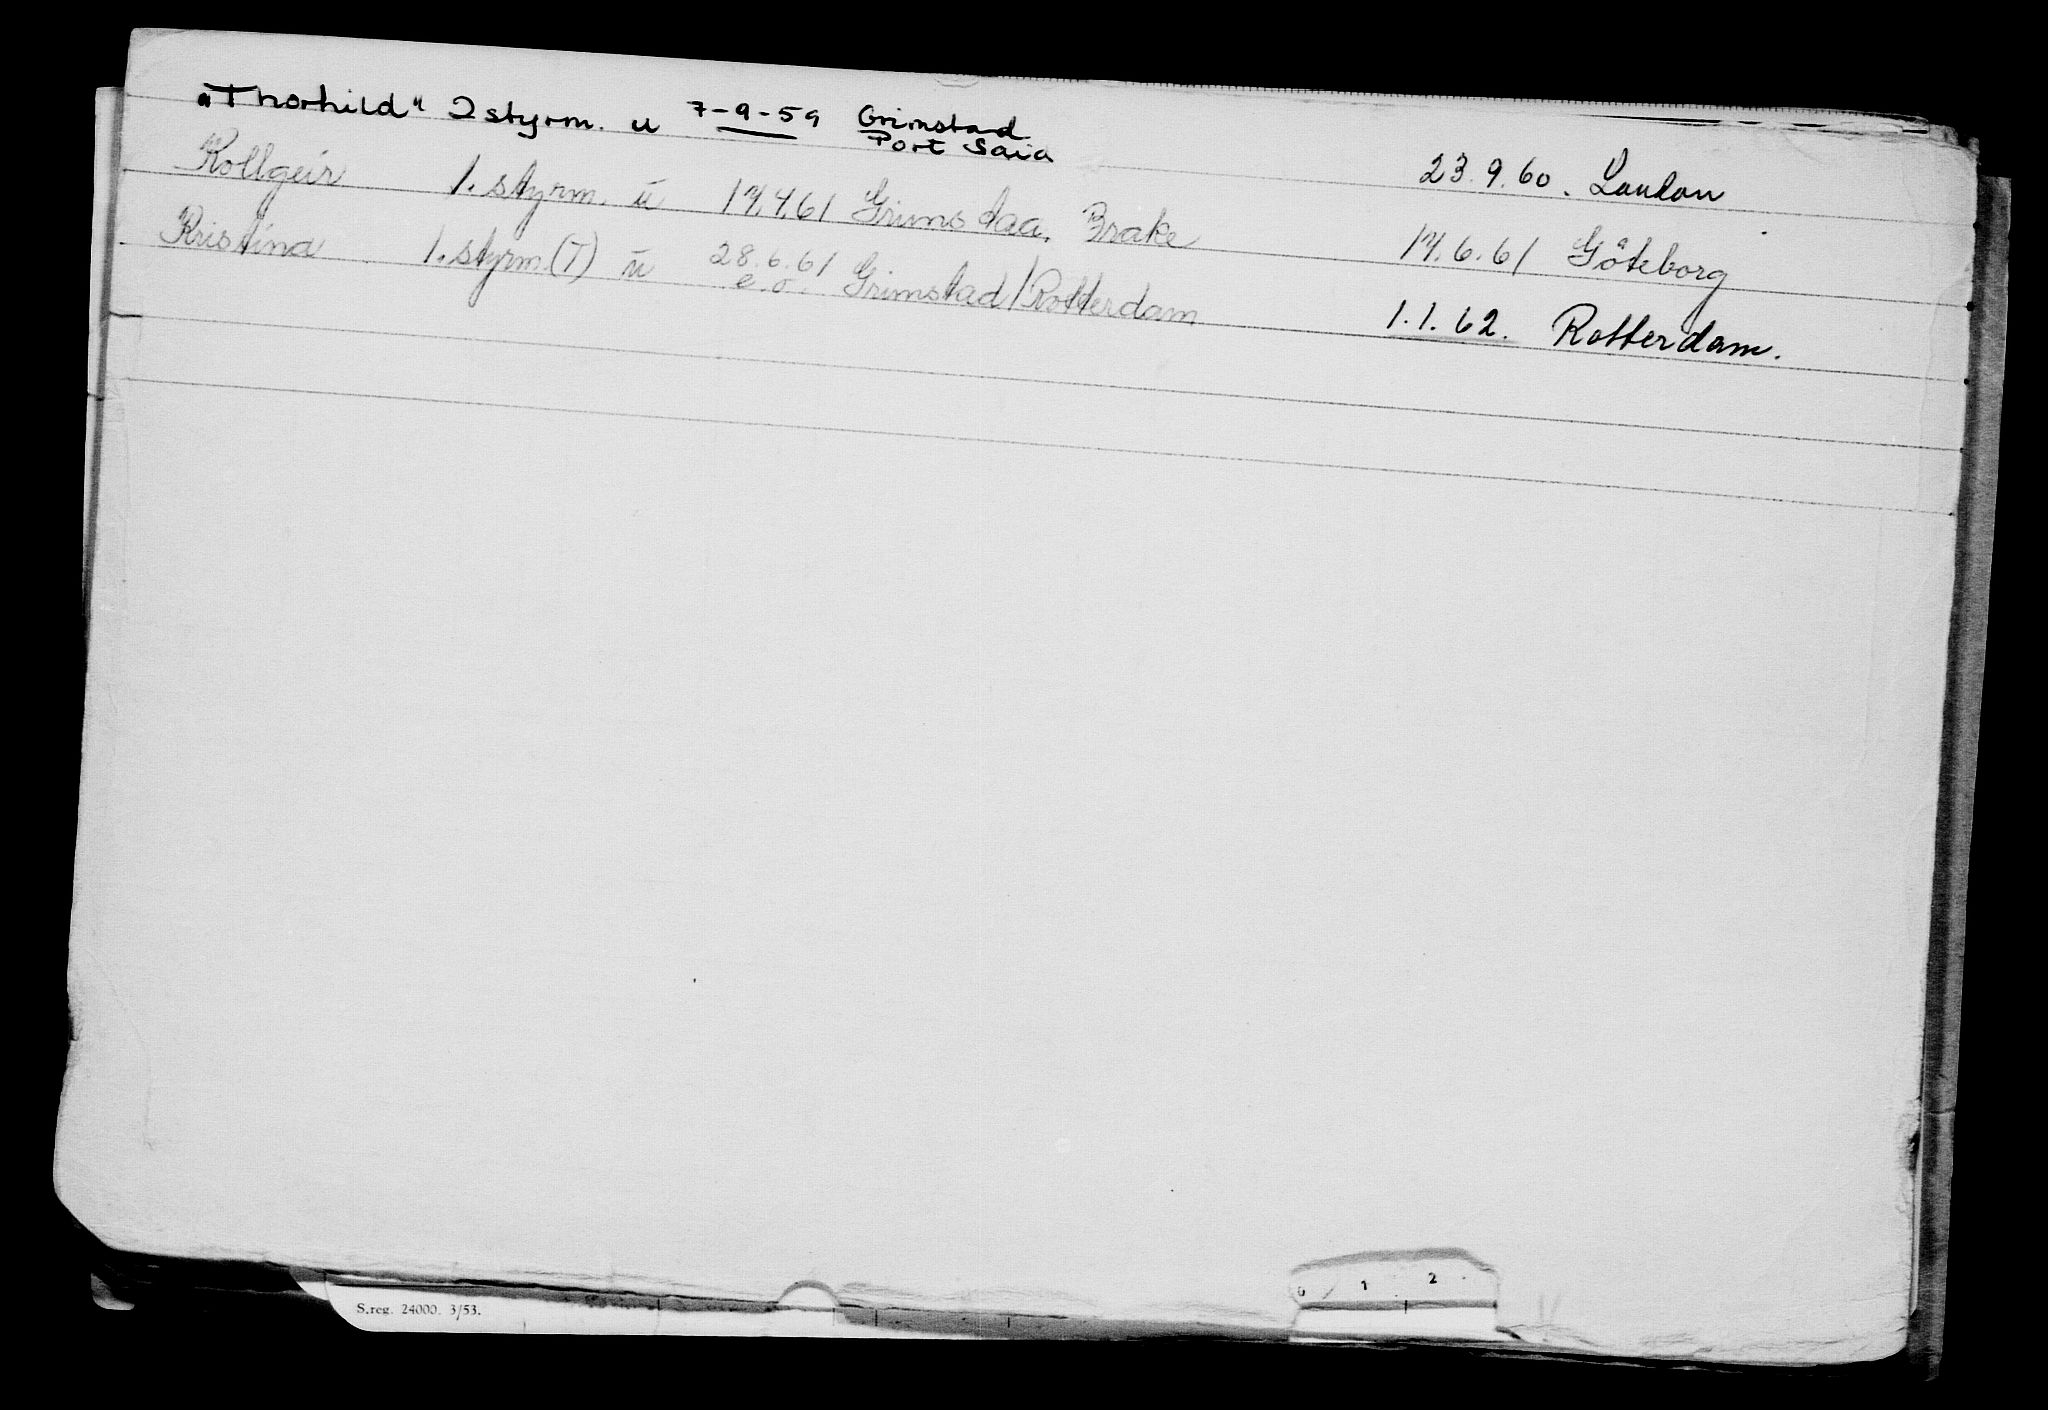 "Thorhild" 2 styrm. u 7-9-59 Grimstad Port Said 23.9.60. London
Kollgeir 1. styrm. u 17.4.61 Grimstad, Brake 17.6.61 Göteborg
Kristina 1. styrm. (T) u 28.6.61 e.o. Grimstad/Rotterdam 1.1.62. Rotterdam.
S.reg. 24000. 3/53.
0 1 2